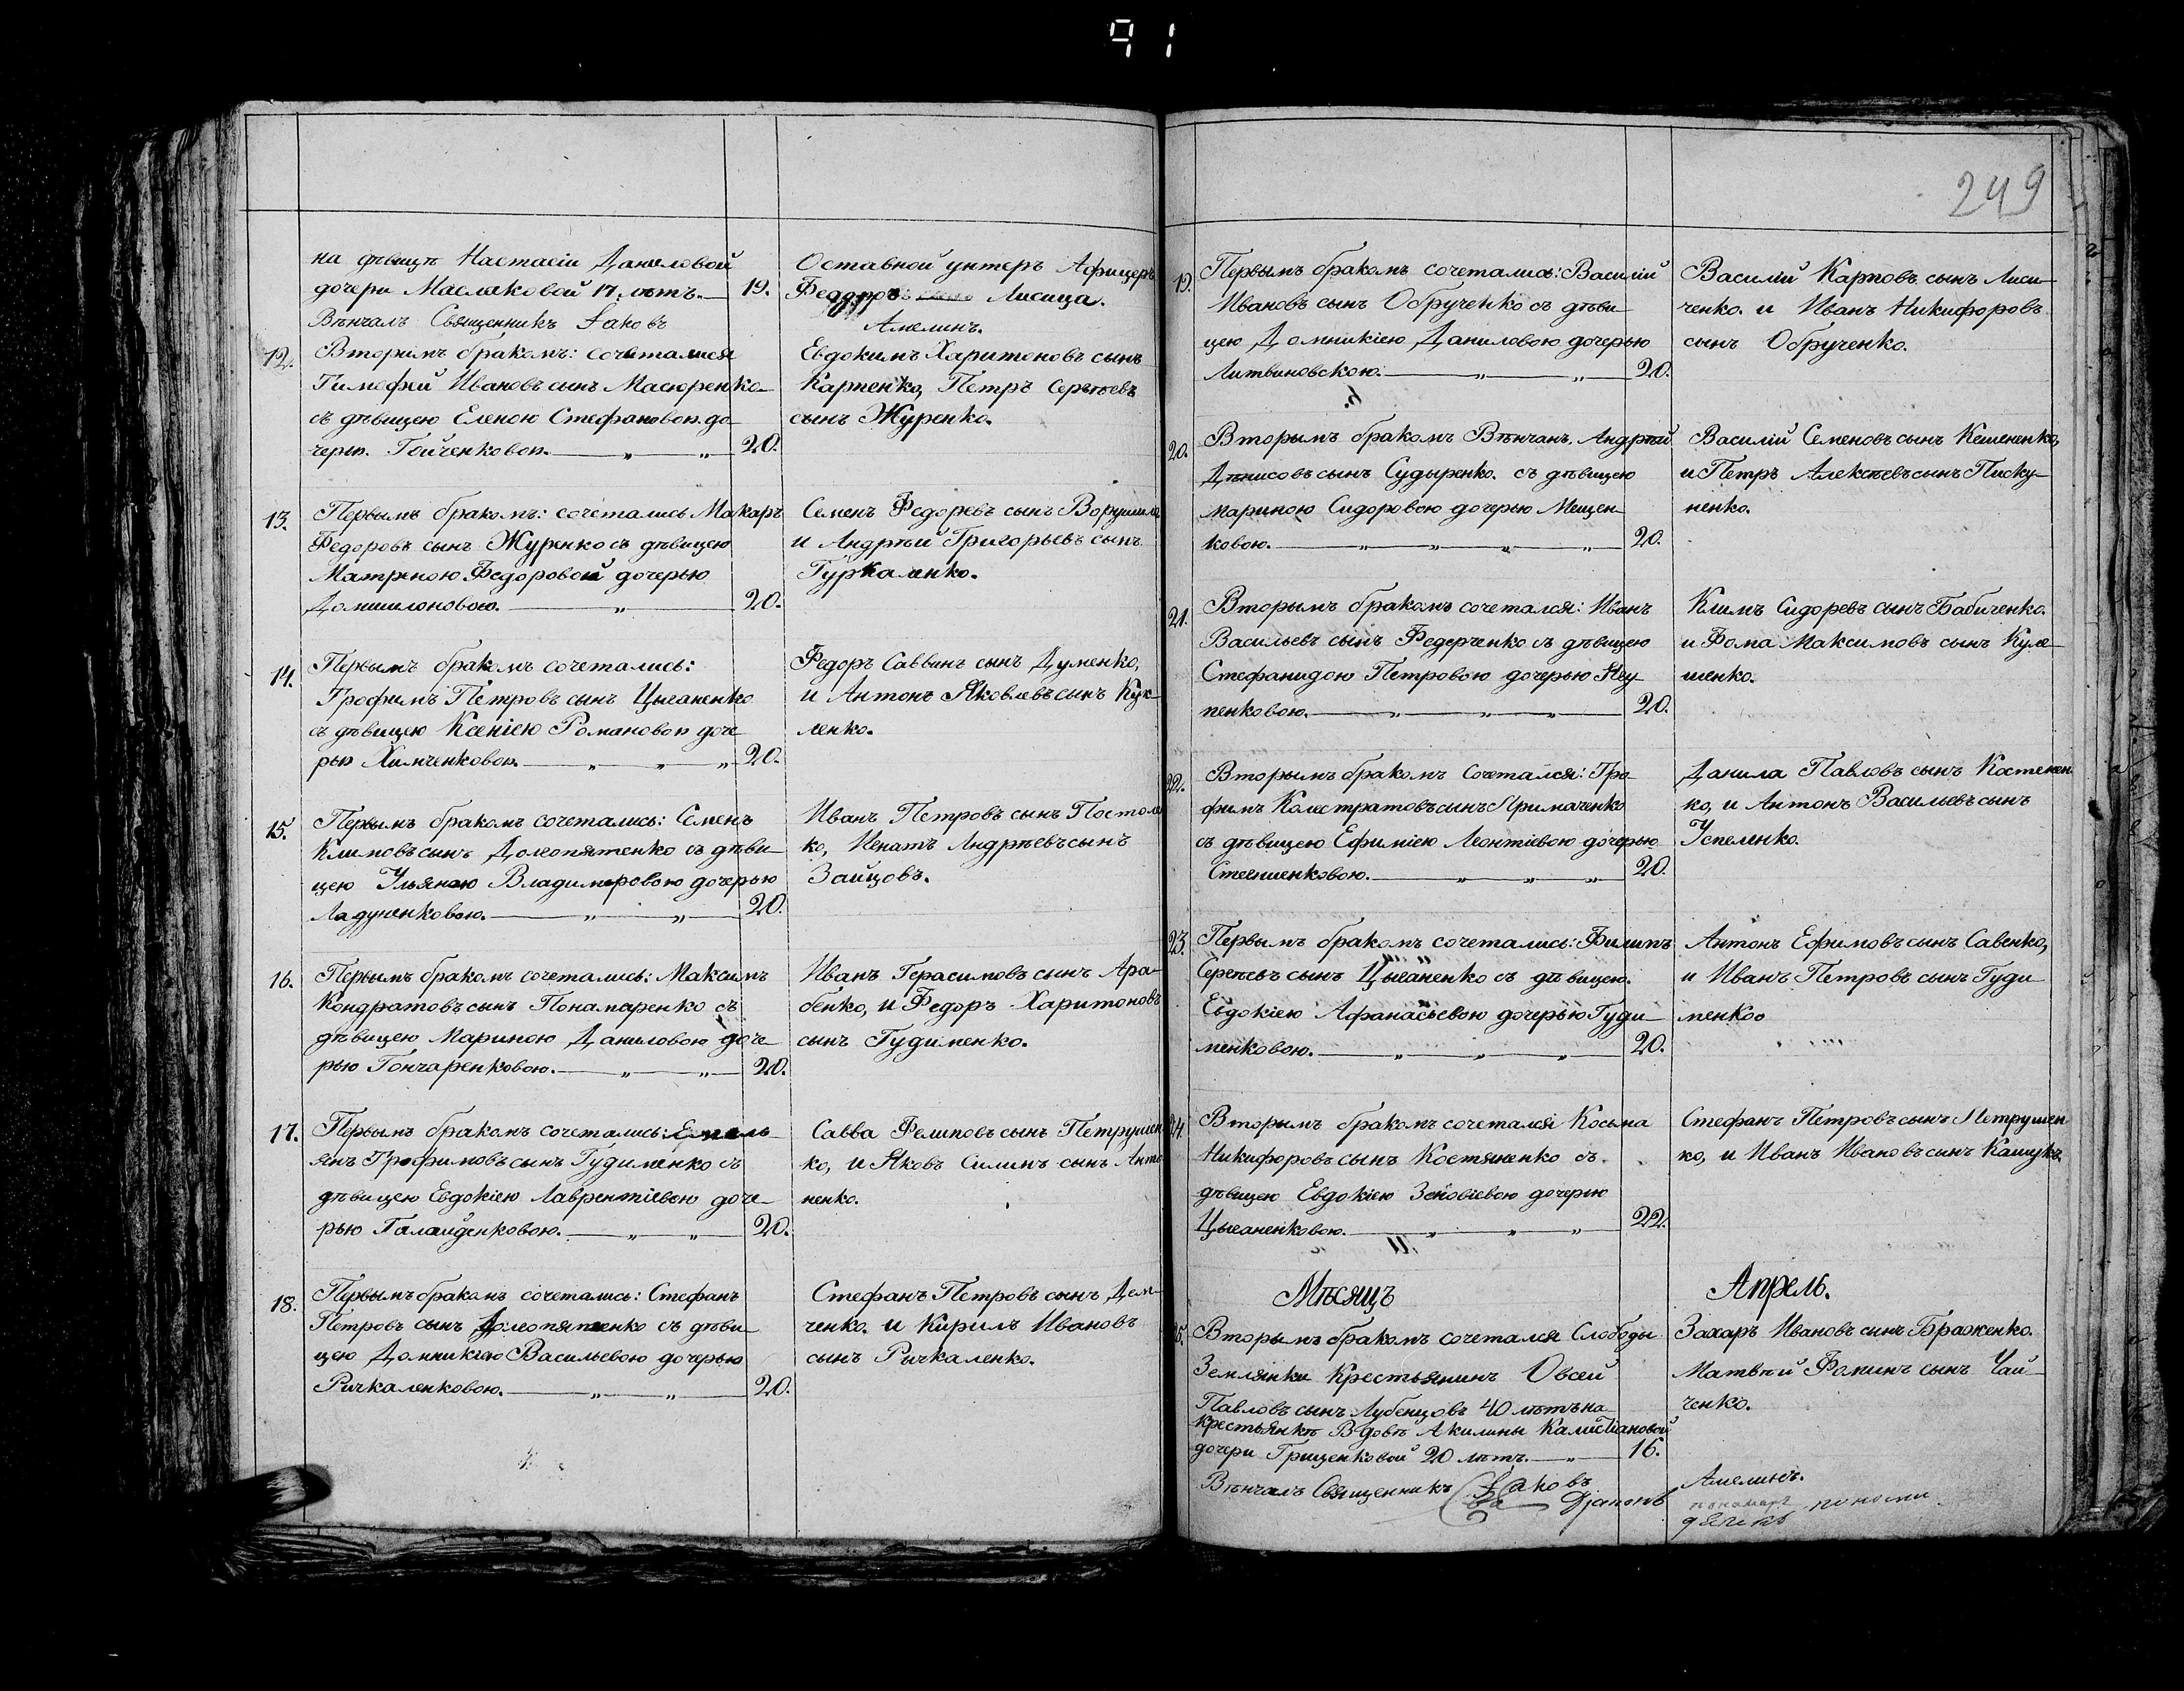 91
на дѣвицѣ Настасіи Даниловой
дочери Маслаковой 17. лѣтъ. 19.
Вѣнчалъ Священникъ Іаковъ
Оставной унтеръ Афицеръ
Федоръ Лисица.
Амелинъ.
12. Вторимъ бракомъ: сочетался
Тимофей Ивановъ сынъ Масюренко
съ дѣвицею Еленою Стефановою до
черью Гойченковою. 20.
Евдокимъ Харитоновъ сынъ
Карпенко, Петръ Сергѣевъ
сынъ Журенко.
13. Первымъ бракомъ: сочетались Макаръ
Федоровъ сынъ Журенко съ дѣвицею
Матреною Федоровой дочерью
20.
Семенъ Федоревъ сынъ Ворушило
и Андрѣй Григорьевъ сынъ
Гуркаленко.
14. Первымъ бракомъ сочетались:
Трофимъ Петровъ сынъ Цыганенко
съ дѣвицею Ксеніею Романовою доче
рью Химченковою 20.
Федоръ Саввинъ сынъ Думенко,
и Антонъ Яковлевъ сынъ Кук-
ленко.
15. Первымъ бракомъ сочетались: Семенъ
Климовъ сынъ Долгопятенко съ дѣви-
цею Ульяною Владимеровою дочерью
Ладуненковою. 20.
Иванъ Петровъ сынъ Постол
ко, Игнатъ Андрѣевъ сынъ
Зайцовъ.
16. Первымъ бракомъ сочетались: Максимъ
Кондратовъ сынъ Понамаренко съ
дѣвицею Мариною Даниловою доче-
рью Гончаренковою. 20.
Иванъ Герасимовъ сынъ Ара-
бенко, и Федоръ Харитоновъ
сынъ Гудименко.
17. Первымъ бракомъ сочетались: Емель-
янъ Трофимовъ сынъ Гудименко съ
дѣвицею Евдокіею Лаврентіевою доче-
рью Галайденковою. 20.
Савва Фелиповъ сынъ Петрушен
ко, и Яковъ Силинъ сынъ Анто
ненко.
18. Первымъ бракомъ сочетались: Стефанъ
Петровъ сынъ Долгопятенко съ дѣви-
цею Домникіею Васильевою дочерью
Ричкаленковою. 20.
Стефанъ Петровъ сынъ Дем-
ченко. и Кирилъ Ивановъ
сынъ Ричкаленко.
249
19. Первымъ бракомъ сочетались: Василій
Ивановъ сынъ Обрученко съ дѣви-
цею Домникіею Даниловою дочерью
Литвиновскою. 20.
Василій Карповъ сынъ Лиси-
ченко. и Иванъ Никифоровъ
сынъ Обрученко.
20. Вторымъ бракомъ Вѣнчанъ. Андрѣй
Дѣнисовъ сынъ Судыренко. съ дѣвицею
Мариною Сидоровою дочерью Мещен-
ковою. 20.
Василій Семеновъ сынъ Кешененко,
и Петръ Алексѣевъ сынъ Писку-
ненко.
21. Вторымъ бракомъ сочетался: Иванъ
Васильевъ сынъ Федерченко съ дѣвицею
Стефанидою Петровою дочерью
пенковою. 20.
Климъ Сидоревъ сынъ Бабиченко.
и Фома Максимовъ сынъ Куле-
шенко.
22. Вторымъ бракомъ сочетался: Тро-
фимъ Колестратовъ сынъ Примаченко
съ дѣвицею Ефиміею Леонтіевою дочерью
20.
Данила Павловъ сынъ Костенен
ко, и Антонъ Васильевъ сынъ
Успеленко.
23. Первымъ бракомъ сочетались: Филипъ
Сергѣевъ сынъ Цыганенко съ дѣвицею.
Евдокіею Афанасьевою дочерью Гуди-
менковою. 20.
Антонъ Ефимовъ сынъ Савенко,
и Иванъ Петровъ сынъ Гуди-
менко
24. Вторымъ бракомъ сочетался Косьма
Никифоровъ сынъ Костяненко съ
дѣвицею Евдокіею Зеновіевою дочерью
Цыганенковою. 22.
Стефанъ Петровъ сынъ Петрушен
ко, и Иванъ Ивановъ сынъ Кашукъ.
Мѣсяцъ Апрель.
25. Вторымъ бракомъ сочетался Слободы
Землянки Крестьянинъ Овсей
Павловъ сынъ Лубенцовъ 40 лѣтъ на
крестьянкѣ Вдовѣ Акилины Калистіановой
дочери Грищенковой 20 лѣтъ. 16.
Вѣнчалъ Священникъ Іаковъ
Захаръ Ивановъ сынъ Браженко.
Матвѣй Фоминъ сынъ Чай-
ченко.
Амелинъ.
пономарь